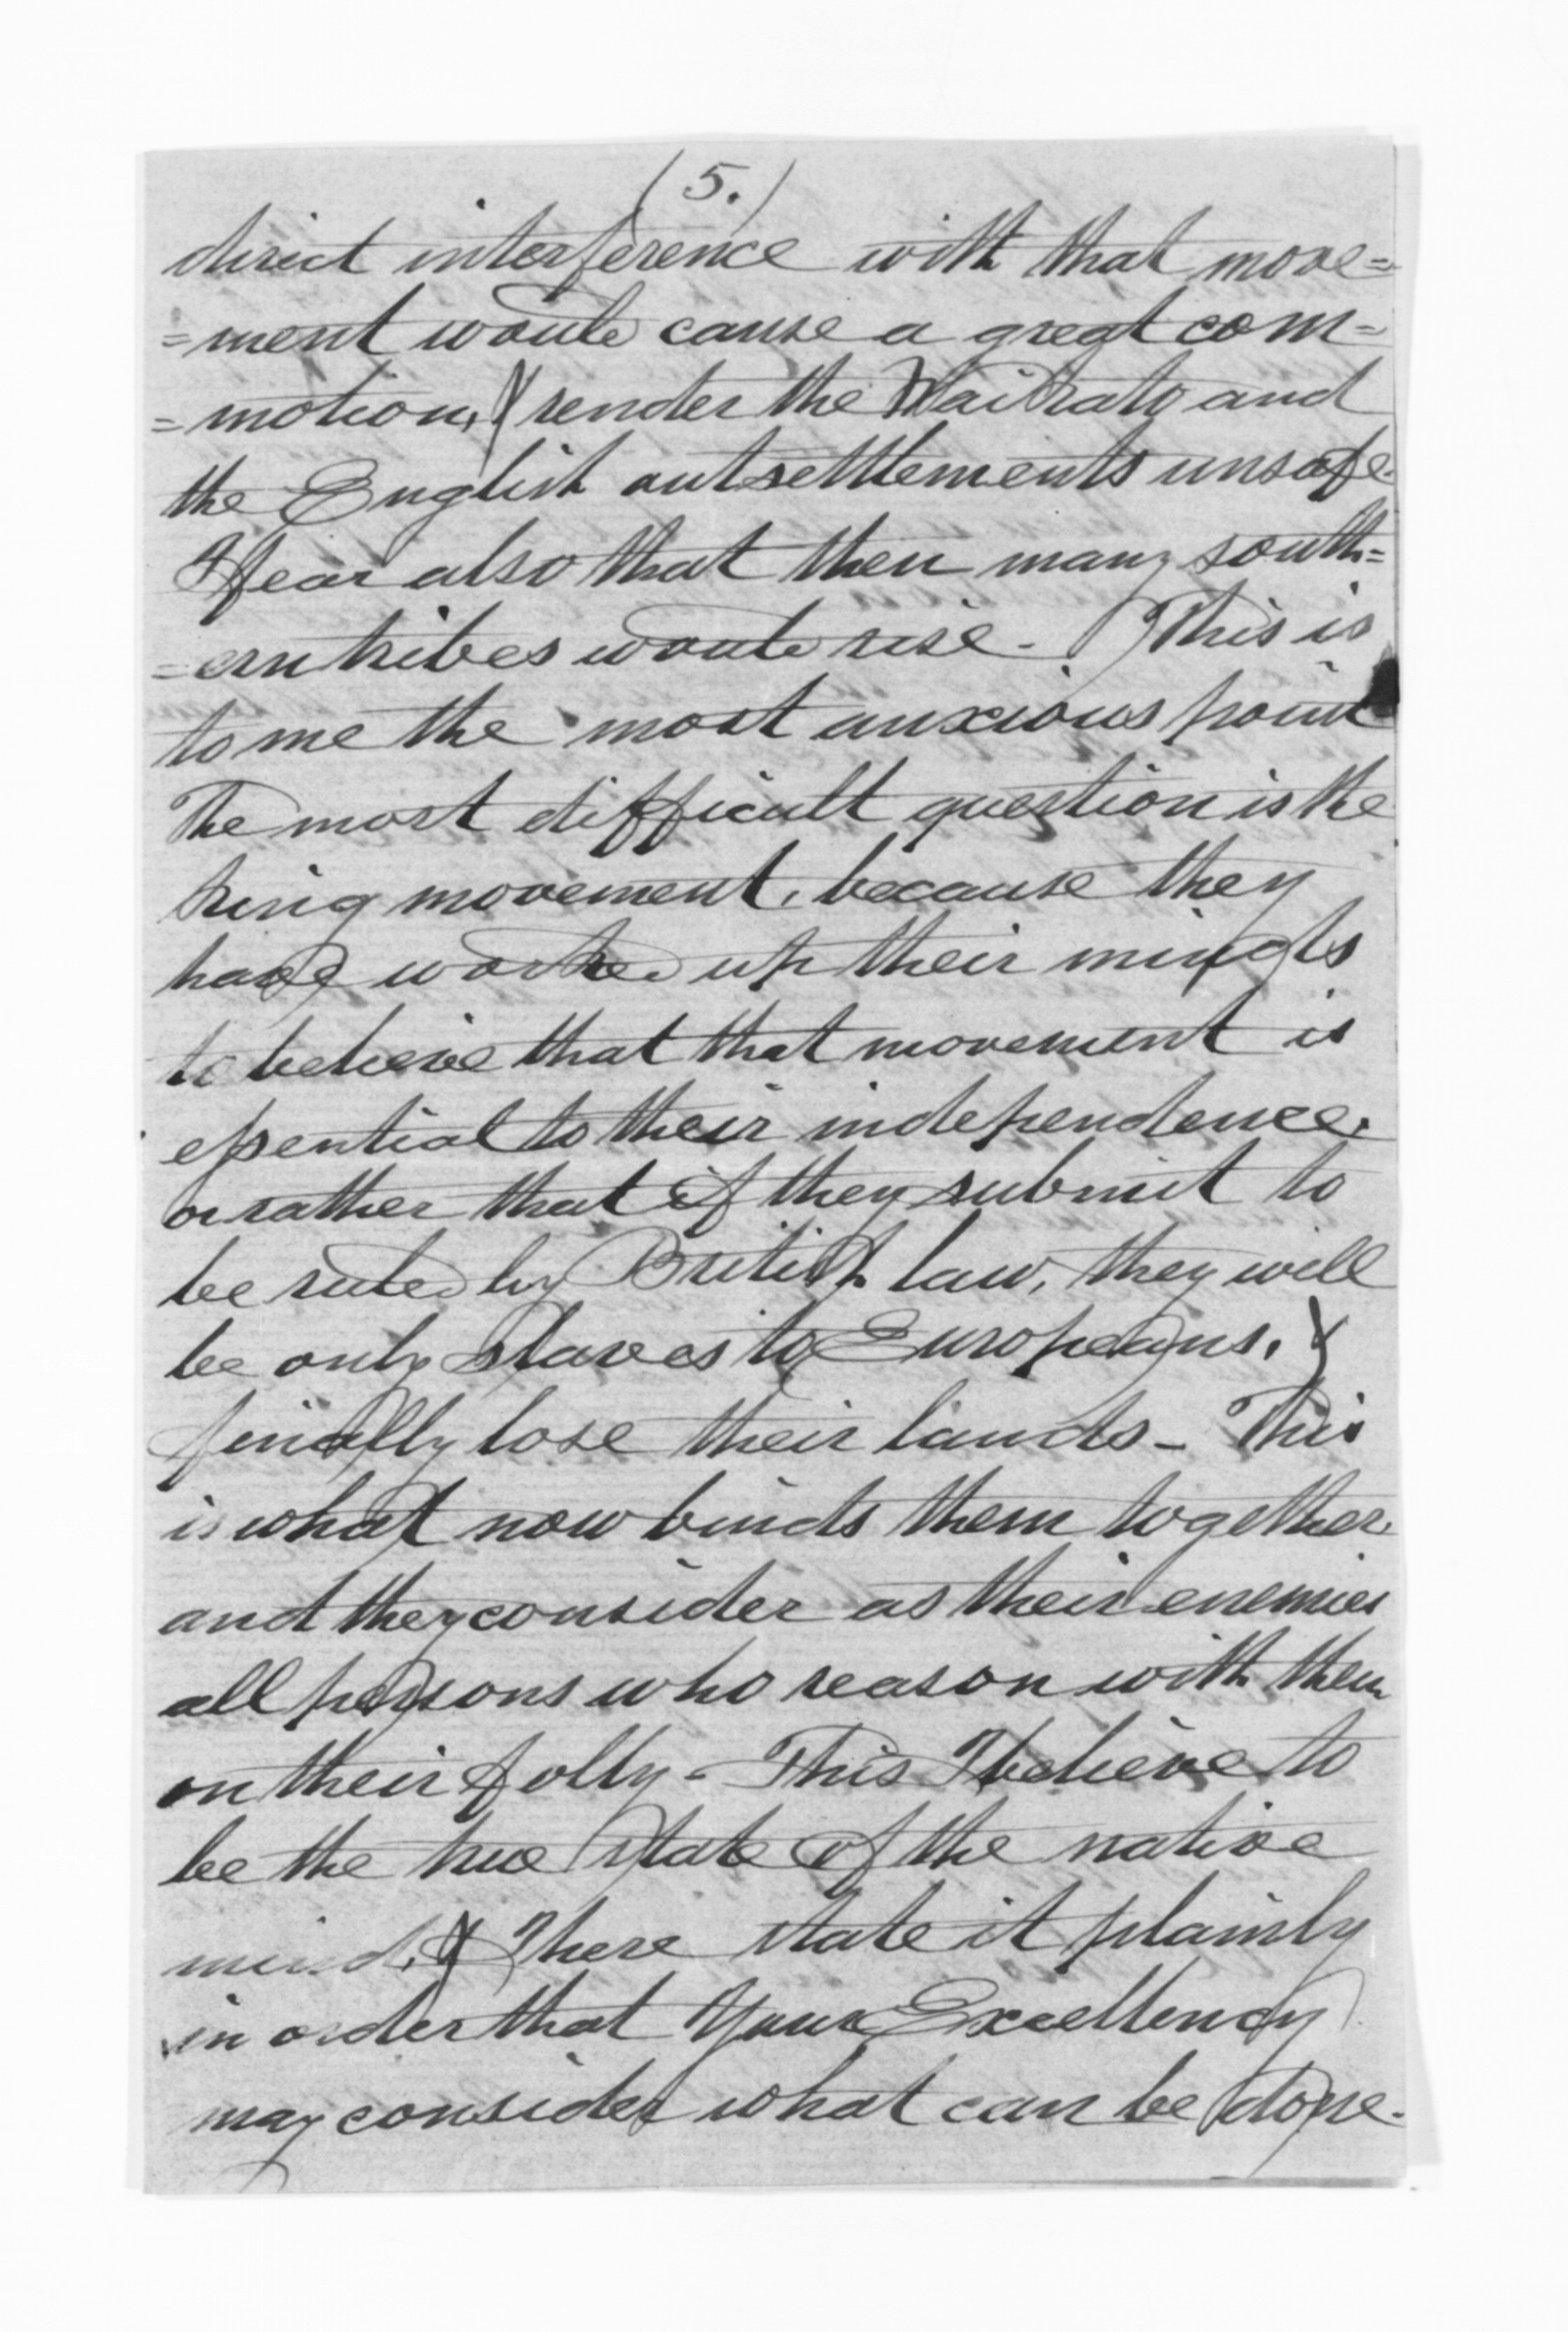 (5.)
direct interference with that move=
=ment would cause a great com=
=motion, & render the Waikato and
the English outsettlements unsafe.
I fear also that then many south=
=ern tribes would rise. This is
to me the most anxious point
The most difficult question is the
King movement, because they
have worked up their minds
to believe that that movement is
essential to their independence.
or rather that if they submit to
be ruled by British law, they will
be only slaves to Europeans, &
finally lose their lands - This
is what now binds them together.
and they consider as their enemies
all persons who reason with them
on their folly - This I believe to
be the true state of the native
mind, & I here state it plainly
in order that Your Excellency
may consider what can be done.